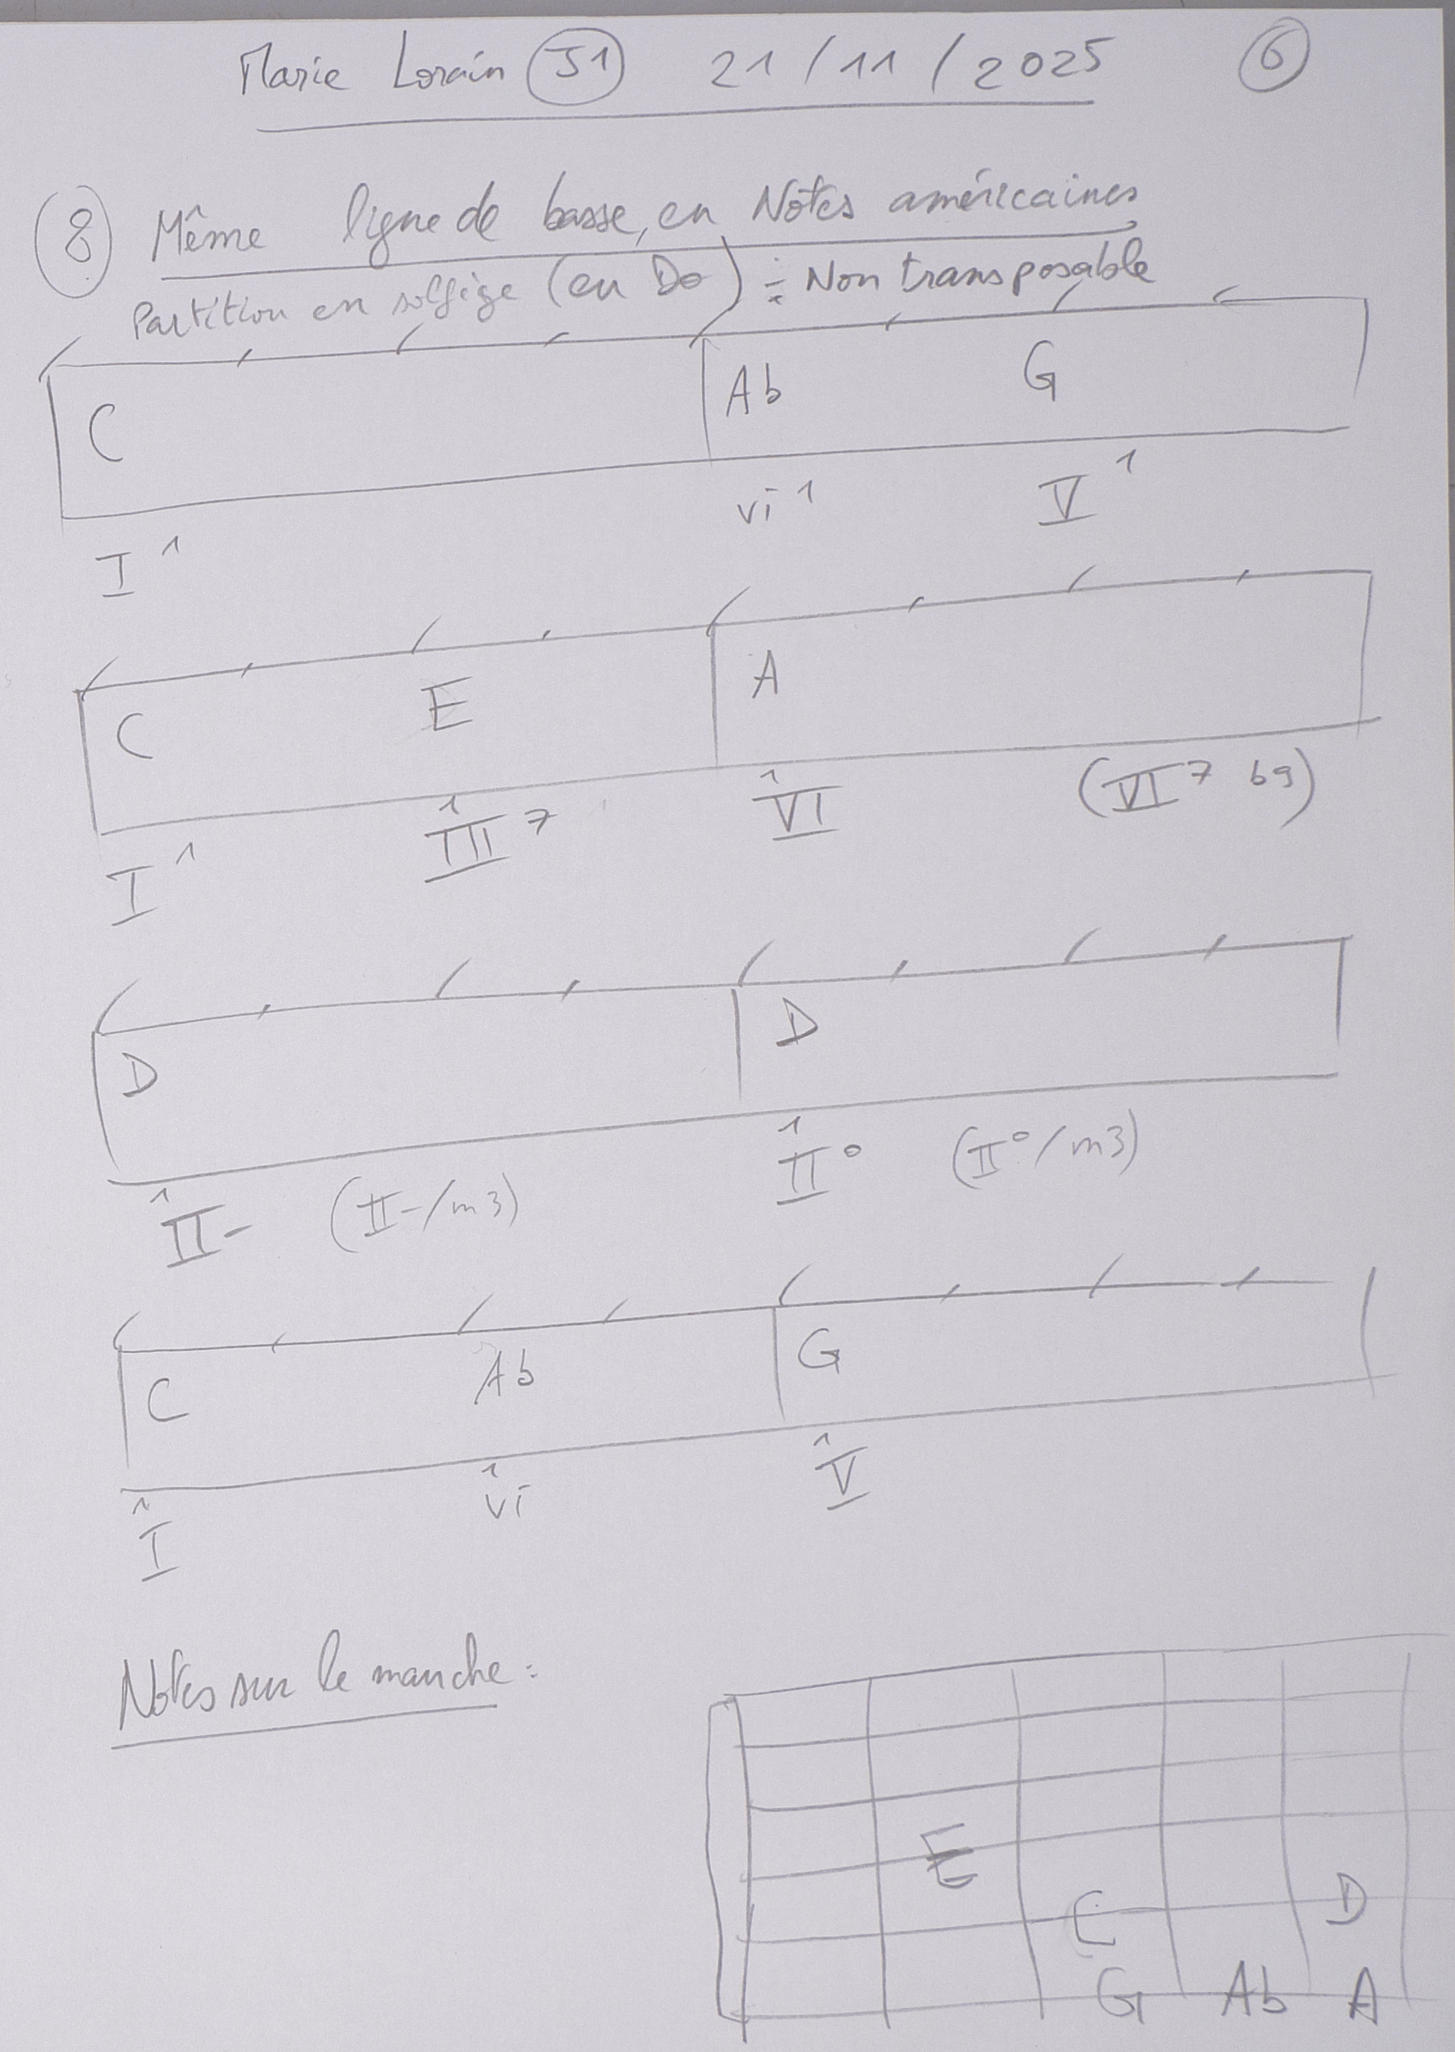 Marie Lorain J1 21/11/2025 6
8 Même ligne de basse, en Notes américaines
Partition en solfège (en Do) : Non transposable
C Ab G
I^1 vi^1 V^1
C E A
I^1 III^1 7 VI^1 (VI7 b9)
D D
II^1- (II-/m3) II^1° (II°/m3)
C Ab G
I^1 vi^1 V^1
Notes sur le manche :
E
C D
G Ab A